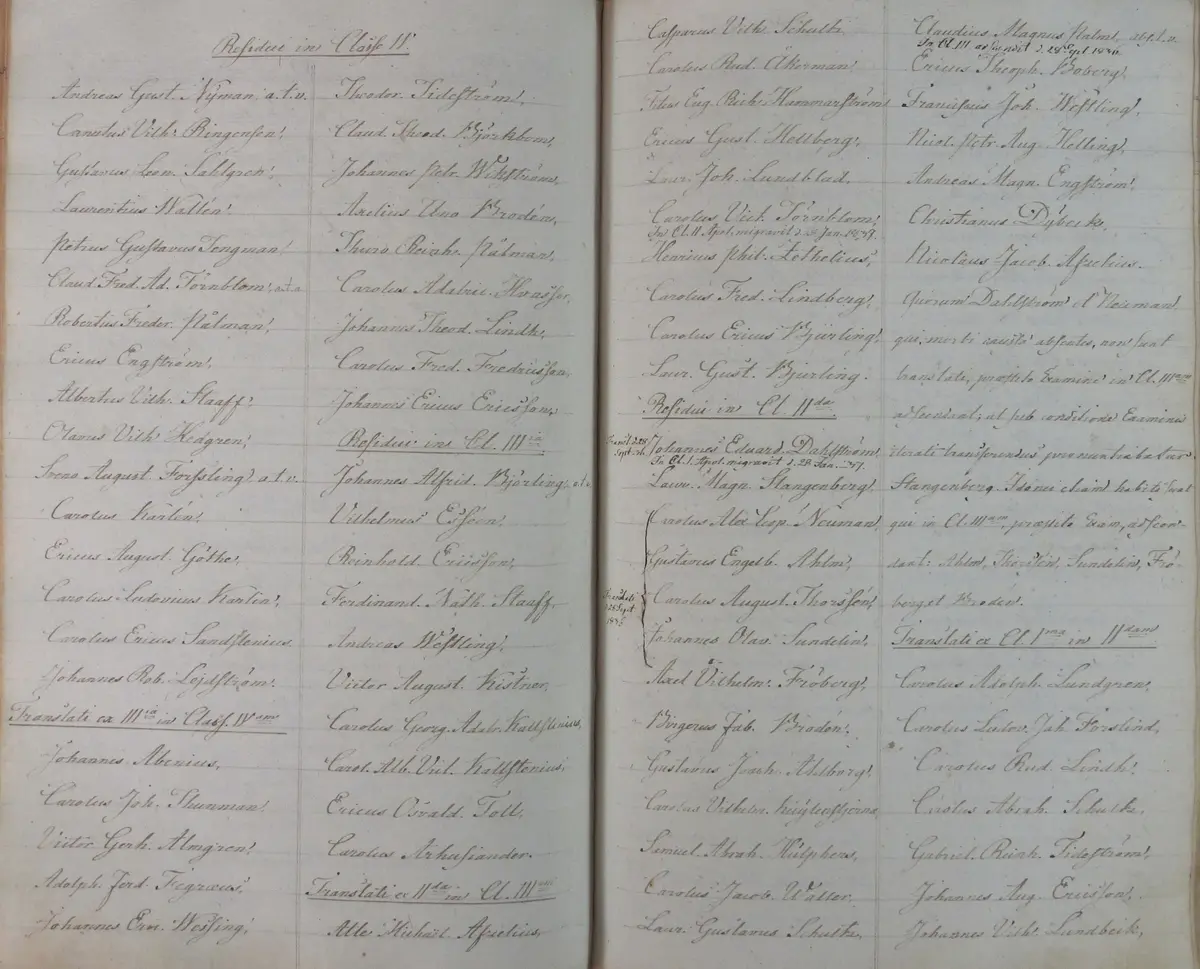 Residui in Classe II.
Andreas Gust. Nyman, a.t.v.
Canutus Vilh. Ringenson,
Gustavus Leon. Sahlgren,
Laurentius Wallén,
Petrus Gustavus Tengman,
Claud. Fred. Ad. Törnblom,
Robertus Freder. Pålman,
Ericus Engström,
Albertus Vilh. Staaff,
Olavus Vilh. Hedgren,
Sveno August. Forssling, a.t.v.
Carolus Karlén,
Ericus August. Göthe,
Carolus Ludovicus Karlén,
Carolus Ericus Sandstenius
Johannes Rob. Löjdström.
Translati ex III ia in Class. IV am
Johannes Abenius,
Carolus Joh. Thunman,
Victor Gerh. Almgren,
Adolph. Ferd. Fegræus,
Johannes Wessling,
Theodor. Tideström,
Claud. Theod. Björkbom,
Johannes Petr. Wikström,
Axelius Una Brodén,
Thure Reinh. Pålman,
Carolus Adalric. Hvasser,
Johannes Theod. Lindh,
Carolus Fred. Fredricsson,
Johannes Ericus Ericsson,
Residui in Cl. III ia
Johannes Alfrid. Björling, a.t.v.
Vilhelmus Esséen,
Reinhold Ericsson,
Ferdinand. Nath. Staaff,
Andreas Westling,
Victor August. Kistner,
Carolus Georg. Adolr. Kallstenius,
Carol. Alb. Vict. Kallstenius,
Ericus Osvald. Toll,
Carolus Arhusiander.
Translati ex II da in Cl. III am
Alle Michael Afzelius,
Casparus Vilh. Schultz,
Carolus Rud. Åkerman,
Titus Eug. Rich. Hammarström,
Ericus Gust. Hellberg,
Laur. Joh. Lundblad,
Carolus Vict. Törnblom,
In Cl. II Apol. migravit d. Jan.
Henricus Phil. Zethelius,
Carolus Fred. Lindberg,
Carolus Ericus Bjurling,
Laur. Gust. Bjurling.
Residui in Cl. II da
Johannes Eduard. Dahlström,
In Cl. I Apol. migravit d. 28 Jan.
Laur. Magn. Stangenberg,
Carolus Alex. Leop. Neuman,
Gustavus Engelb. Ahlm,
Carolus August. Thorsson,
Johannes Olav. Sundelin,
Axel Vilhelm. Fröberg,
Birgerus Fab. Brodén,
Gustavus Joach. Ahlborg,
Carolus Vilhelm. Leijonstjerna
Samuel Abrah. Hülphers,
Carolus Jacob. Waller,
Laur. Gustavus Schultz,
Claudius Magnus Palm, a.t.v.
In Cl. III ascendit d. 28 Sept.
Ericus Theoph. Boberg,
Franciscus Joh. Westling,
Nicol. Petr. Aug. Helling,
Andreas Magn. Engström,
Christianus Dybeck,
Nicolaus Jacob. Afzelius.
Quorum Dahlström et Neuman,
qui, morbi causâ absentes, non sunt
translati, præstito Examine in Cl. III am
ascendent; at sub conditione Examinis
iterati transferendus pronuntiabatur
Stangenberg. Idonei etiam habiti sunt
qui in Cl. III am, præstito Exam, ascen-
dant: Ahlm, Sundelin, Frö-
berg et Brodén.
Translati ex Cl. I ma in II dam
Carolus Adolph. Lundgren,
Carolus Ludov. Joh. Forslind,
Carolus Rud. Lindh,
Carolus Abrah. Schultz,
Gabriel. Reinh. Tideström,
Johannes Aug. Ericsson,
Johannes Vilh. Lundbeck,